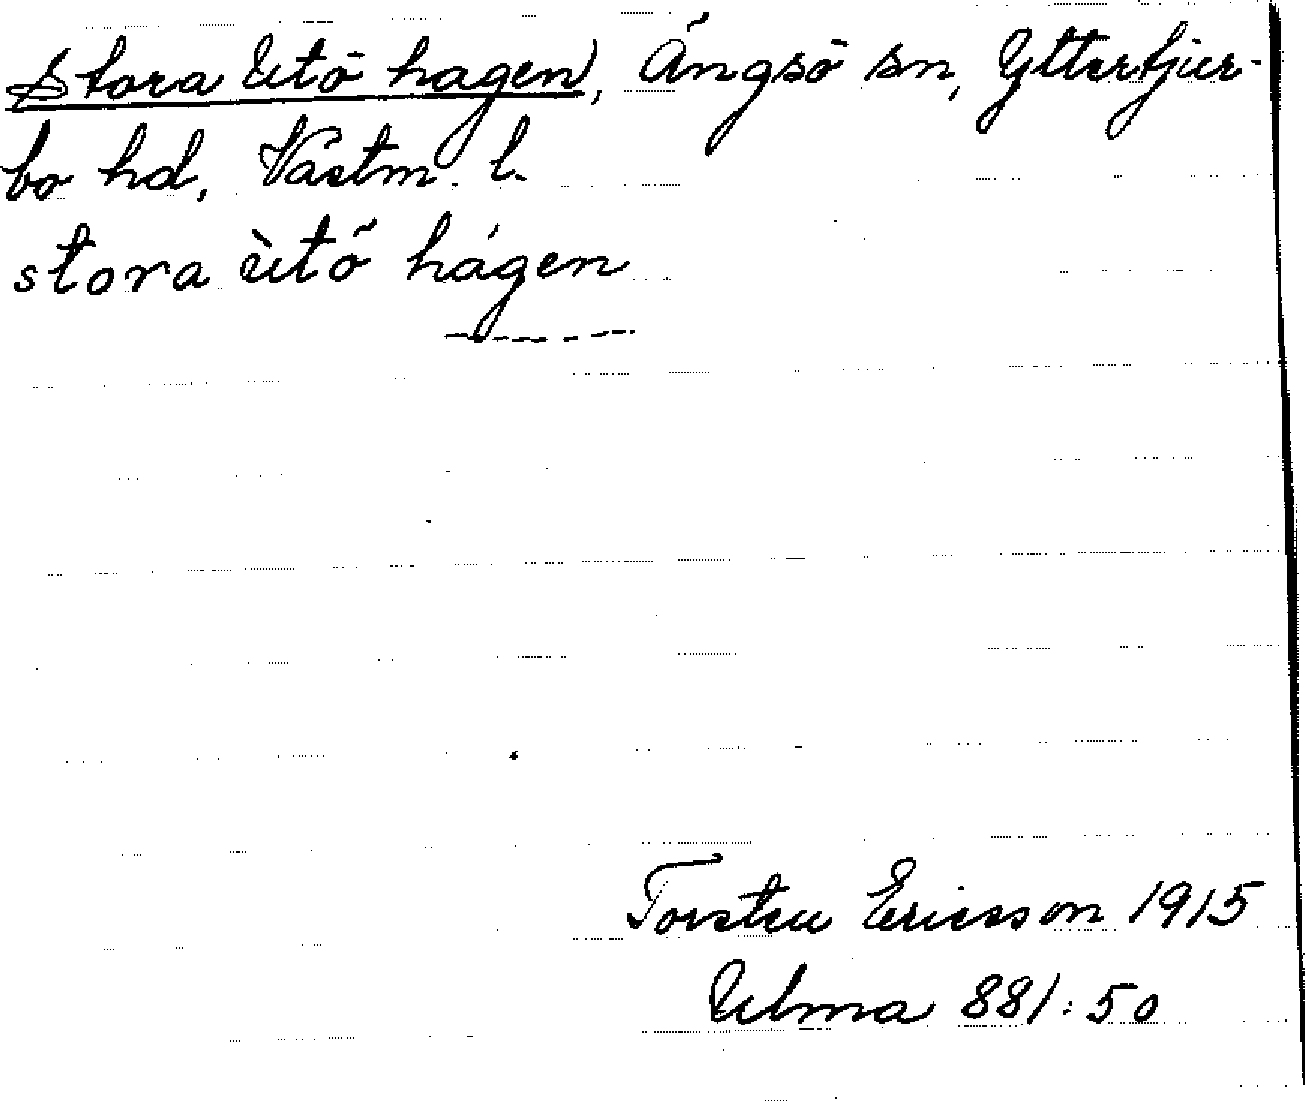 Stora Utö hagen, Ängsö sn, Yttertjur-
bo hd, Västm. l.
stora ùtő hágen
Torsten Ericsson 1915
Ulma 881:50